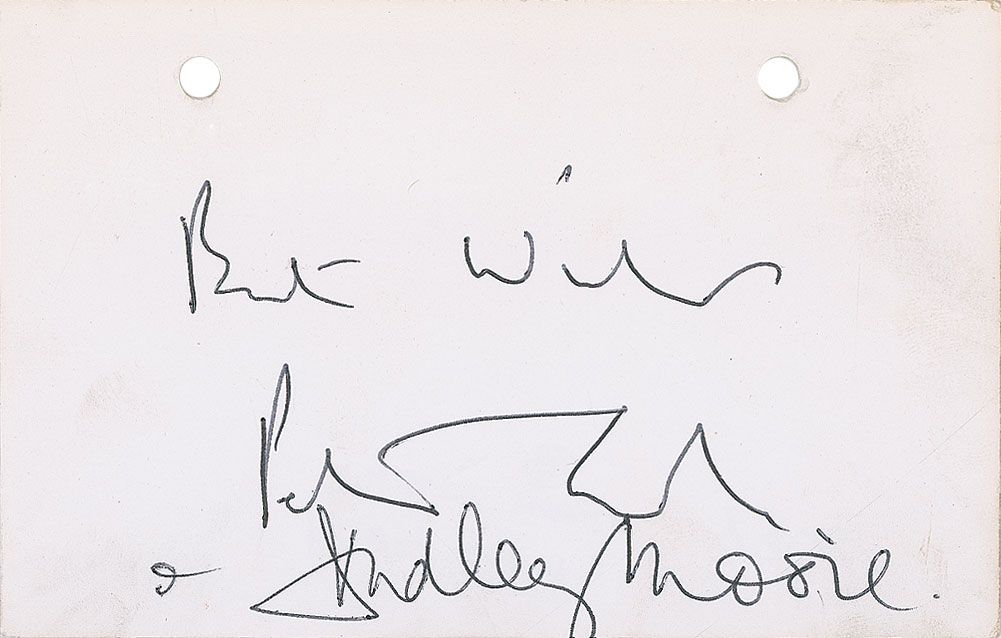 Best Wishes
Peter Cook
Dudley Moore.